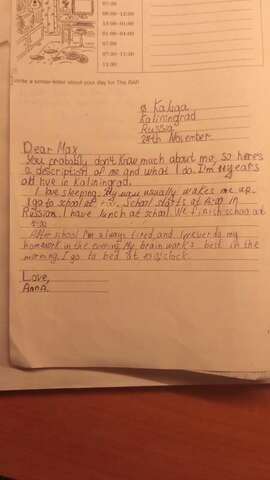 07:00
08:00-12:00
13:00-01:00
01:00-04:00
07:00
07:00-11:30
11:00
Write a similar letter about your day for The RAP.
Kaliga,
Kaliningrad
Russia
24th November
Dear Max
You probably don't know much about me, so here's
a description of me and what I do. I'm years
old live in Kaliningrad.
I love sleeping. My usually wakes me up.
I go to school at School starts at 8:00 in
Russian. I have lunch at school. We finish school at
After school I'm always tired, and I never do my
homework in the evening. My brain works best in the
morning. I go to bed at o'clock.
Love,
Anna.